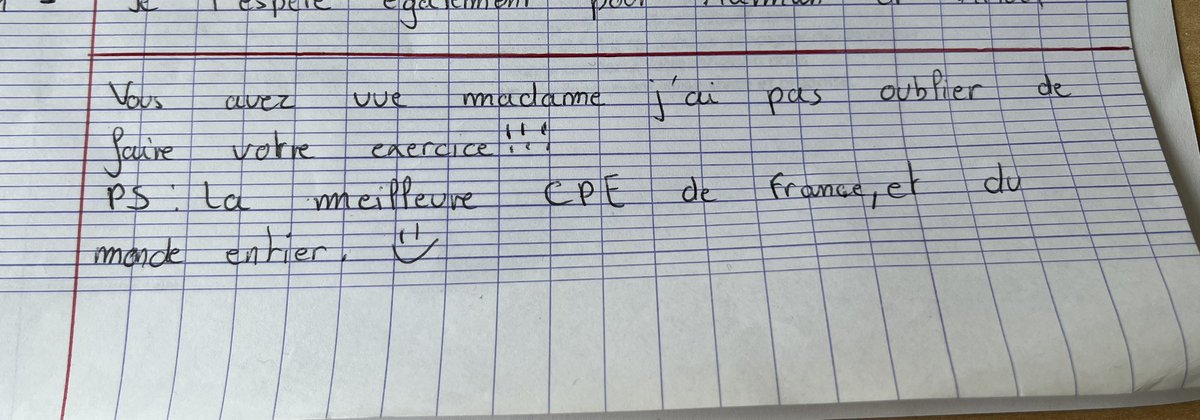 Je l'espère également pour
Vous avez vue madame j'ai pas oublier de
faire votre exercice !!!
PS : La meilleure CPE de France, et du
monde entier.